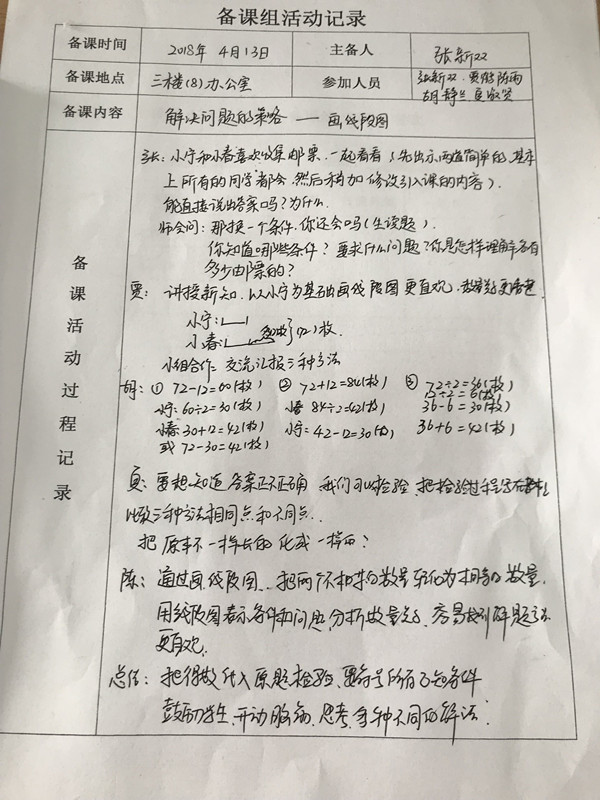 备课组活动记录
备课时间 2018年4月13日 主备人 张新双
备课地点 三楼(8)办公室 参加人员 张新双、贾 陈雨
胡静兰
备课内容 解决问题的策略——画线段图
备课活动过程记录
张：小宁和小春喜欢收集邮票，一起看看（先出示两道简单的，基本
上所有的同学都会，然后稍加修改引入课的内容）。
能直接说出答案吗？为什么。
师会问：那换一个条件，你还会吗（生读题）。
你知道哪些条件？要求什么问题？你是怎样理解各有
多少邮票的？
贾：讲授新知，以小宁为基础画线段图更直观，数量关更清楚
小宁：
小春： 多12枚 }72枚
小组合作：交流汇报三种方法
胡：① 72-12=60(枚) ② 72+12=84(枚) ③ 72÷2=36(枚)
12÷2=6(枚)
小宁：60÷2=30(枚) 小春 84÷2=42(枚) 36-6=30(枚)
小春：30+12=42(枚) 小宁：42-12=30(枚) 36+6=42(枚)
或 72-30=42(枚)
夏：要想知道答案正不正确，我们可以检验，把检验过程写在 上
比较三种方法相同点和不同点。
把原来不一样长的化成一样的？
陈：通过画线段图，把两个不相等的数量转化为相等的数量，
用线段图表示条件和问题，分析数量关系，容易找到解题方法
更直观。
总结：把得数代入原题检验，要符合所有已知条件
鼓励学生，开动脑筋，思考，多种不同的解法。